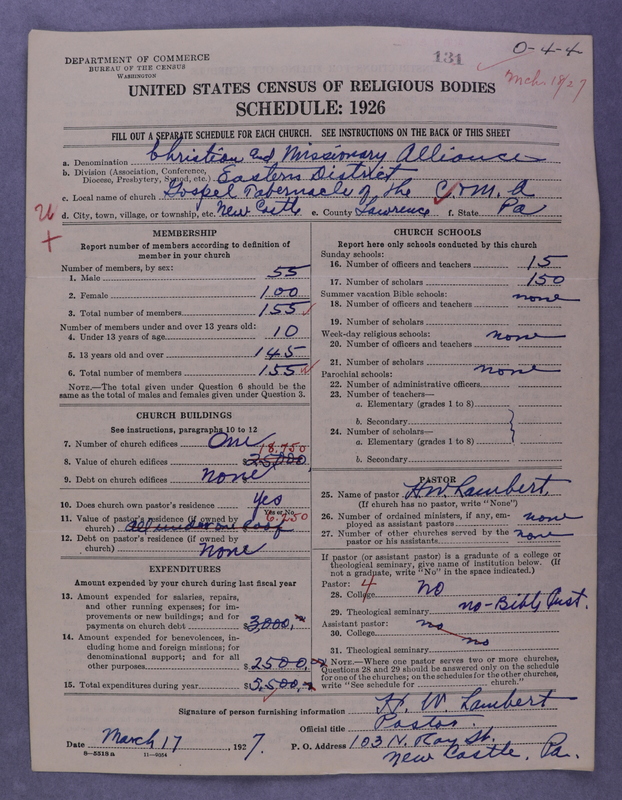 DEPARTMENT OF COMMERCE
BUREAU OF THE CENSUS
WASHINGTON
131
0-4-4
Mch. 18/27
UNITED STATES CENSUS OF RELIGIOUS BODIES
SCHEDULE: 1926
FILL OUT A SEPARATE SCHEDULE FOR EACH CHURCH. SEE INSTRUCTIONS ON THE BACK OF THIS SHEET
a. Denomination Christian and Missionary Alliance
b. Division (Association, Conference, Diocese, Presbytery, Synod, etc.) Eastern District
c. Local name of church Gospel Tabernacle of the C. & M. A
d. City, town, village, or township, etc. New Castle e. County Lawrence f. State Pa
MEMBERSHIP
Report number of members according to definition of
member in your church
Number of members, by sex:
1. Male 55
2. Female 100
3. Total number of members 155
Number of members under and over 13 years old:
4. Under 13 years of age 10
5. 13 years old and over 145
6. Total number of members 155
NOTE.—The total given under Question 6 should be the
same as the total of males and females given under Question 3.
CHURCH BUILDINGS
See instructions, paragraphs 10 to 12
7. Number of church edifices One
18,750
8. Value of church edifices 25,000
9. Debt on church edifices none
10. Does church own pastor's residence? yes
Yes or No
11. Value of pastor's residence (if owned by
church) all under one roof 6,250
12. Debt on pastor's residence (if owned by
church) none
EXPENDITURES
Amount expended by your church during last fiscal year
13. Amount expended for salaries, repairs,
and other running expenses; for im-
provements or new buildings; and for
payments on church debt $3,000,
14. Amount expended for benevolences, in-
cluding home and foreign missions; for
denominational support; and for all
other purposes $2500,
15. Total expenditures during year $5,500,
CHURCH SCHOOLS
Report here only schools conducted by this church
Sunday schools:
16. Number of officers and teachers 15
17. Number of scholars 150
Summer vacation Bible schools: none
18. Number of officers and teachers
19. Number of scholars
Week-day religious schools: none
20. Number of officers and teachers
21. Number of scholars
Parochial schools: none
22. Number of administrative officers
23. Number of teachers—
a. Elementary (grades 1 to 8)
b. Secondary
24. Number of scholars—
a. Elementary (grades 1 to 8)
b. Secondary
PASTOR
25. Name of pastor H. W. Lambert
(If church has no pastor, write "None")
26. Number of ordained ministers, if any, em-
ployed as assistant pastors none
27. Number of other churches served by the
pastor or his assistants none
If pastor (or assistant pastor) is a graduate of a college or
theological seminary, give name of institution below. (If
not a graduate, write "No" in the space indicated.)
Pastor: 4
28. College no
29. Theological seminary no-Bible Inst.
Assistant pastor: no
30. College no
31. Theological seminary
NOTE.—Where one pastor serves two or more churches,
Questions 28 and 29 should be answered only on the schedule
for one of the churches; on the schedules for the other churches,
write "See schedule for church."
Signature of person furnishing information H. W. Lambert
Official title Pastor.
Date March 17, 1927. P. O. Address 103 N. Ray St.
New Castle, Pa.
8—5518a 11—9354